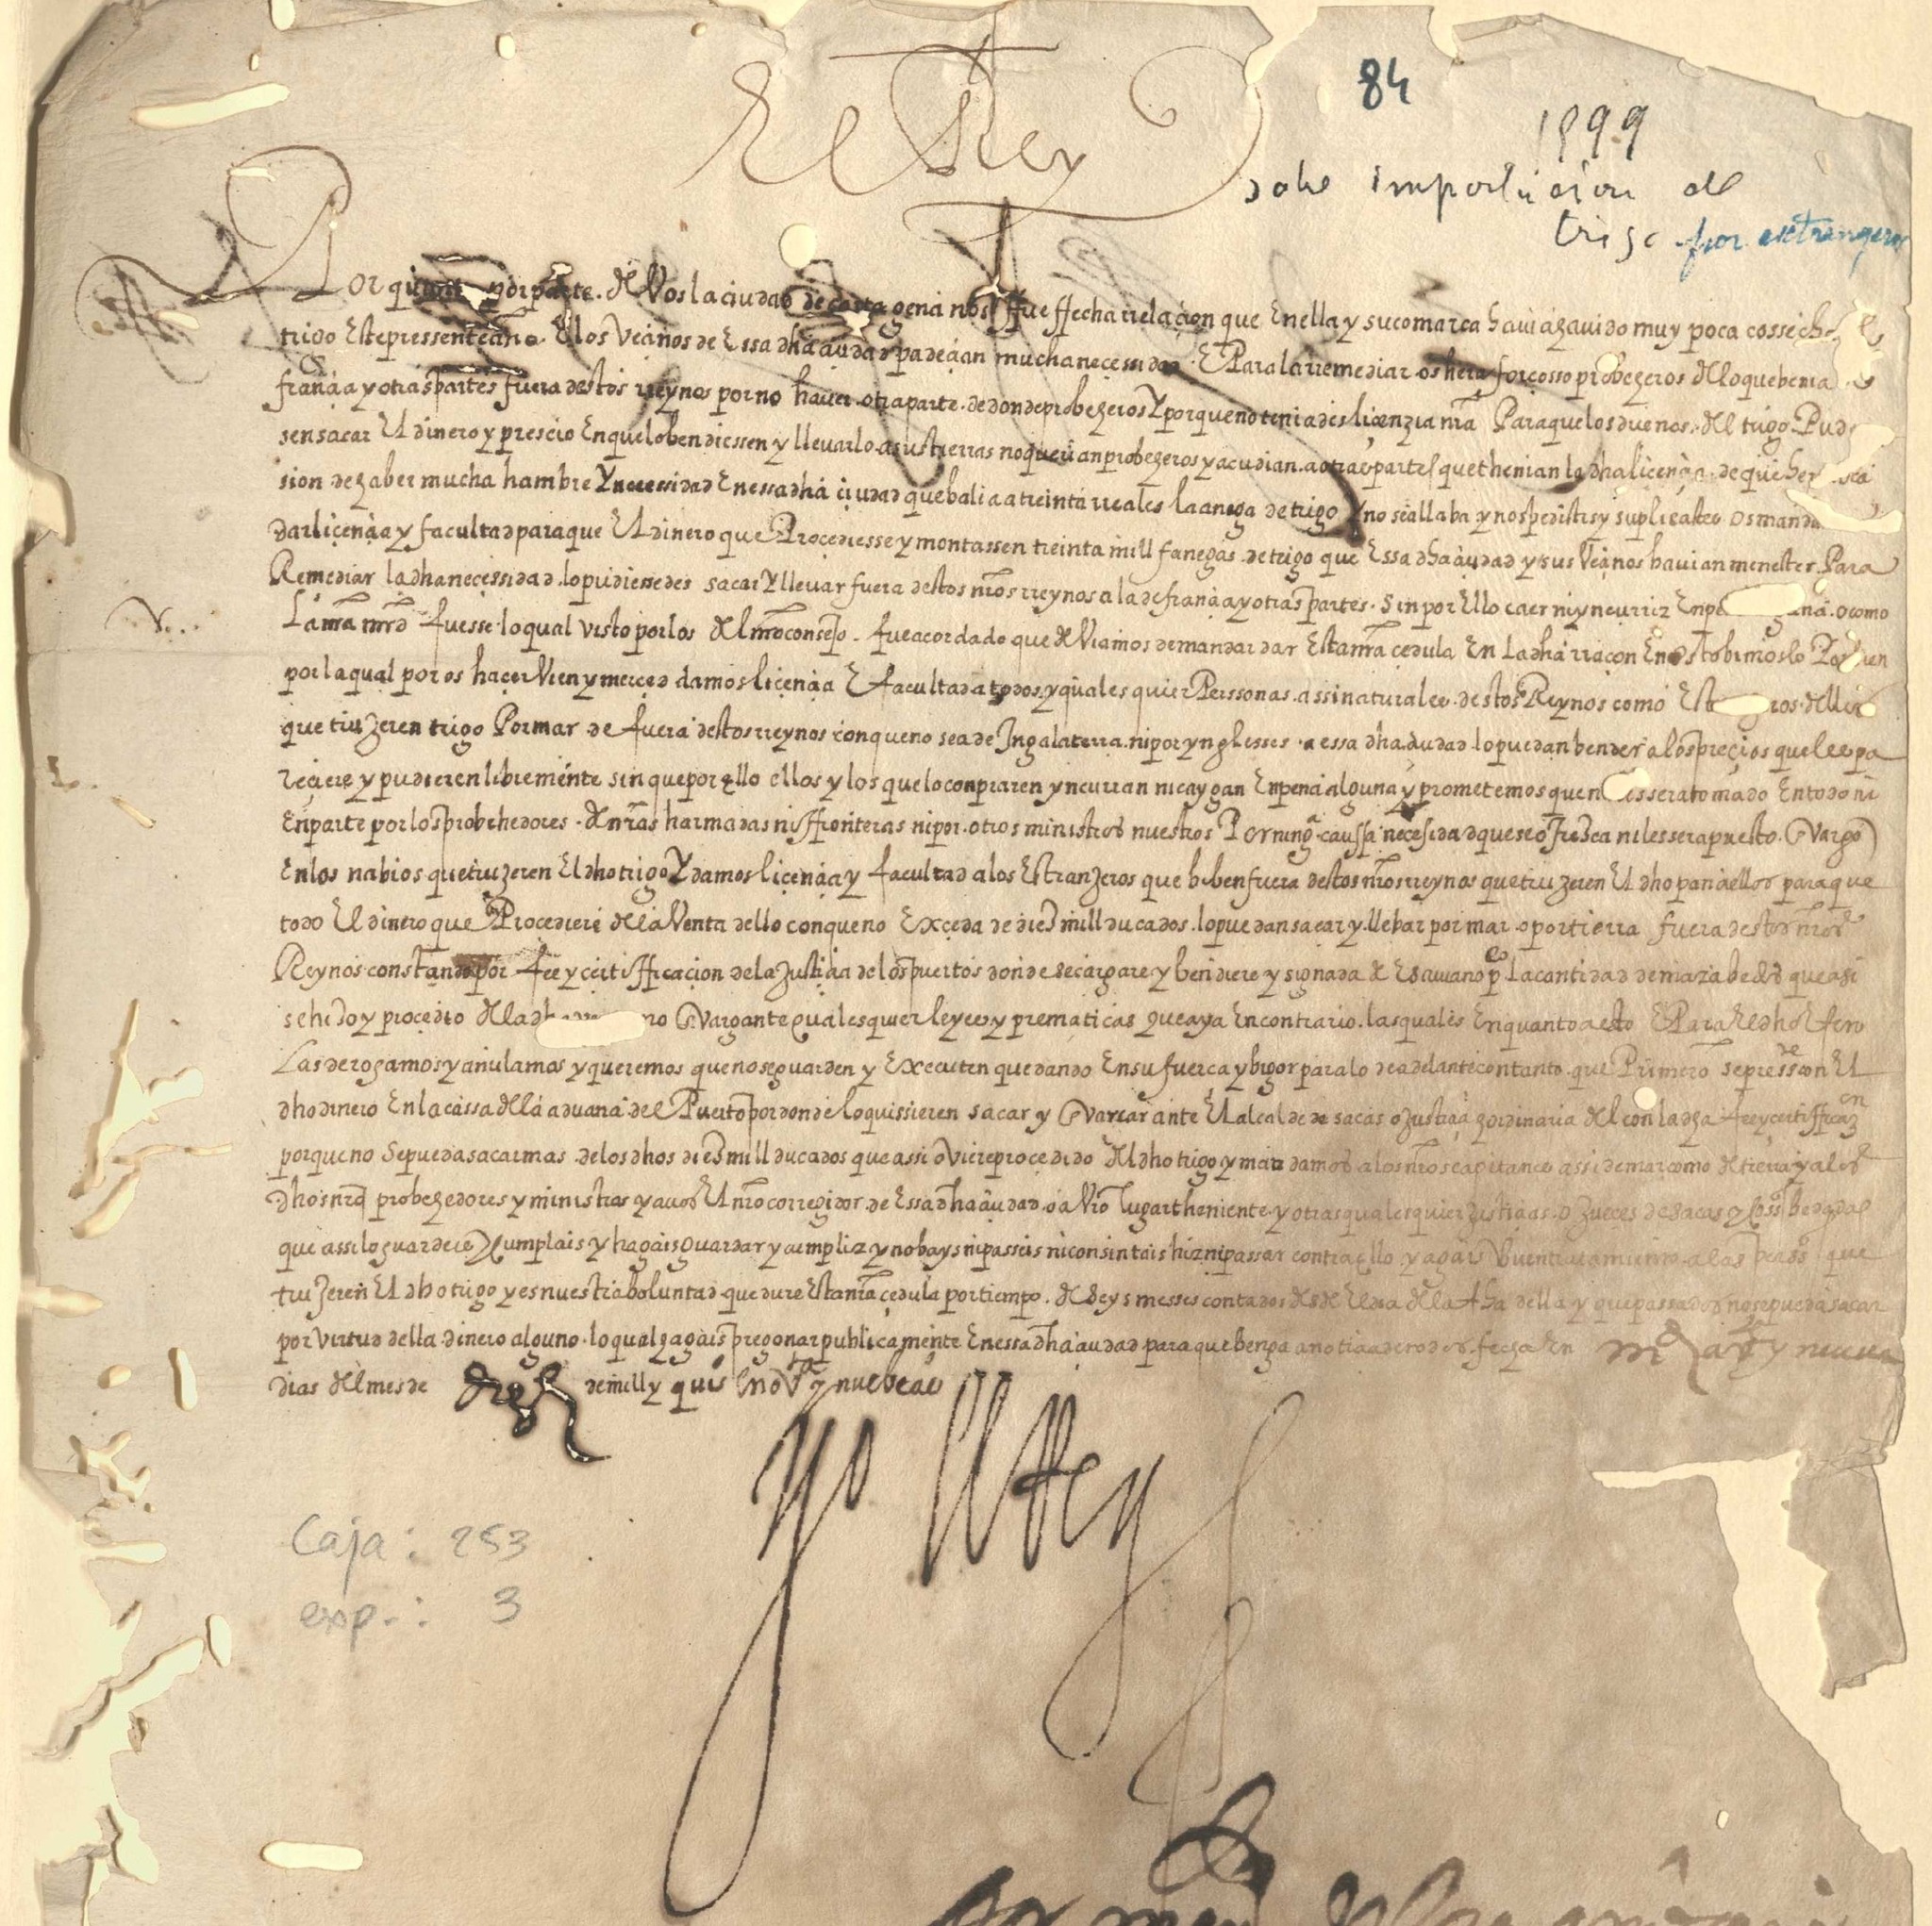 El Rey
84
1599
sobre importacion de
trigo por extrangeros
Por quanto por parte de Vos la ciudad de cartagena nos ffue ffecha rrelaçion que En ella y su comarca havia havido muy poca cossecha de
trigo Este pressente año E los Veçinos de Essa dha çiudad padeçian mucha neçessidad E Para la rremediar os hera forçosso probeheros del lo que benia de
françia y otras partes fuera destos rreynos por no haver otra parte de donde probeheros Y porque no teniades liçenzia nra Para que los dueños del trigo Pud
sen sacar El dinero y prescio En que lo bendiessen y llevarlo a sus tierras no querian probeheros y acudian a otras partes que thenian la dha liçençia de que
sion de haber mucha hambre Y necessidad En essa dha çiudad que balia a treinta rreales la anega de trigo Y no se allaba y nos pedistes y suplicastes os manda
dar liçençia y facultad para que El dinero que Proçediesse y montassen treinta mill fanegas de trigo que Essa dha çiudad y sus Veçinos havian menester Para
Remediar la dha neçessidad lo pudiesedes sacar Y llevar fuera destos nros rreynos a la de françia y otras partes sin por Ello caer ni yncurrir En pena o como
La nra mrd fuesse lo qual visto por los del nro consejo fue acordado que deviamos de mandar dar Esta nra cedula En La dha rraçon E nos tobimoslo Por bien
por la qual por os haçer Vien y merçed damos liçençia E facultad a todos y quales quier Perssonas assi naturales destos Reynos como Est ros dellos
que truxeren trigo Por mar de fuera destos rreynos con que no sea de Ingalaterra ni por yngleses a essa dha çiudad lo puedan bender a los preçios que les pa
reçiere y pudieren libremente sin que por ello ellos y los que lo conpraren yncurran ni caygan En pena alguna y prometemos que no les sera tomado En todo ni
En parte por los probehedores de nras harmadas ni ffronteras ni por otros ministros nuestros Por ninga caussa neçesidad que se ofrezca ni les sera puesto Envargo
En los nabios que truxeren El dho trigo Y damos liçençia y facultad a los Estranjeros que biben fuera destos nros rreynos que truxeren El dho pan a ellos para que
todo El dinero que Proçediere de la Venta dello con que no Exçeda de diez mill ducados lo puedan sacar y llebar por mar o por tierra fuera destos nros
Reynos constando por fee y çertifficaçion de la Justiçia de los puertos donde se cargare y bendiere y signada de Escrivano pco La cantidad de maravedis que asi
se hido y proçedio de la dha no Envargante qualesquier leyes y prematicas que aya En contrario las quales En quanto a esto E Para El dho Efeto
Las derogamos y anulamos y queremos que no se guarden y Executen quedando En su fuerça y bigor para lo de adelante con tanto que Primero se pressente con El
dho dinero En la cassa de la aduana del Puerto por donde lo quissieren sacar y Envarcar ante El alcalde de sacas o Justiçia hordinaria del con la dha fee y çertifficaçon
porque no Se pueda sacar mas de los dhos diez mill ducados que assi oviere proçedido del dho trigo y mandamos a los nros capitanes assi de mar como de tierra y a los
dhos nros probehedores y ministros y a vos El nro corregidor de Essa dha çiudad o a Vro lugartheniente y otras quales quier Justiçias o Jueces de sacas y cossas bedadas
que assi lo guardeis Cumplais y hagais Guardar y cumplir y no bays ni passeis ni consintais hir ni passar contra ello y agais buen tratamiento a las persos que
truxeren El dho trigo y es nuestra boluntad que dure Esta nra çedula por tiempo de seys messes contados desde El dia de la fha della y que passados no se pueda sacar
por virtud della dinero alguno lo qual hagais pregonar publicamente En essa dha çiudad para que benga a notiçia de todos fecha En md a Vte y nueve
dias del mes de de mill y quis E no Ta y nuebe aos
yo El Rey
Caja: 253
exp.: 3